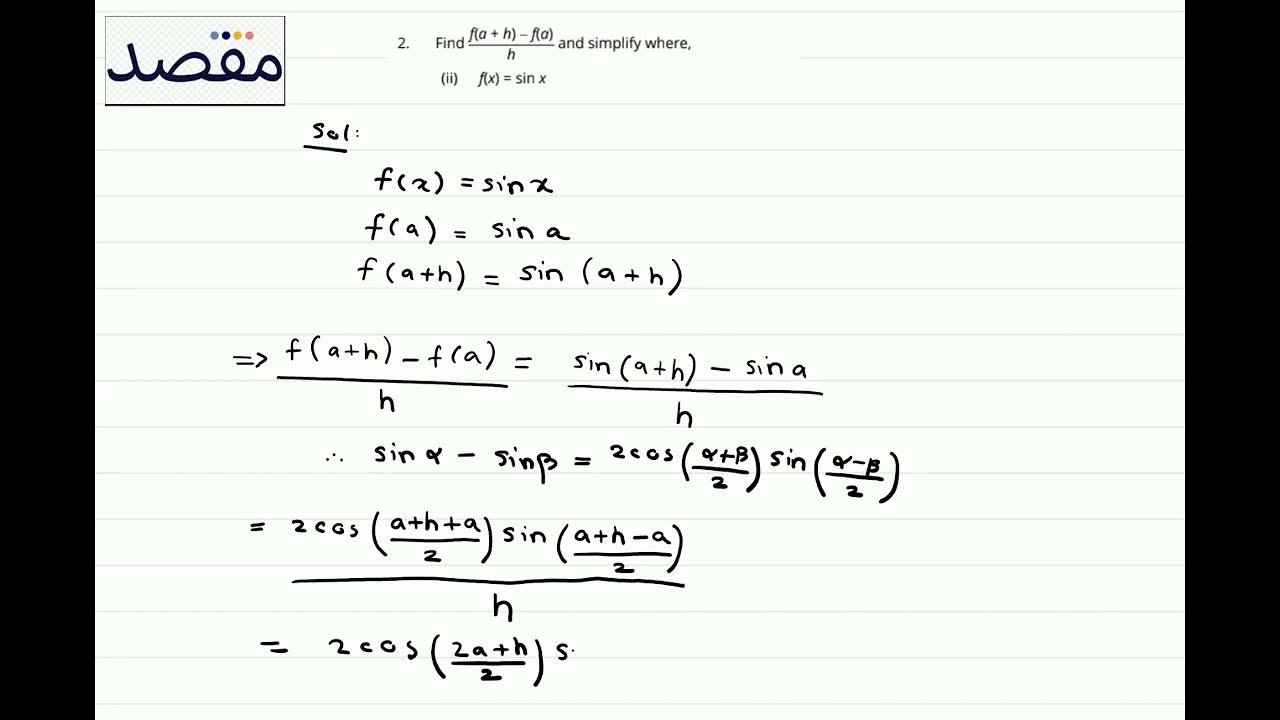 مقصد
2. Find f(a + h) – f(a) / h and simplify where,
(ii) f(x) = sin x
Sol:
f(x) = sin x
f(a) = sin a
f(a+h) = sin (a+h)
=> f(a+h) - f(a) / h = sin(a+h) - sin a / h
∴ sin α - sin β = 2cos(α+β / 2) sin(α-β / 2)
= 2cos(a+h+a / 2) sin(a+h-a / 2) / h
= 2cos(2a+h / 2) s